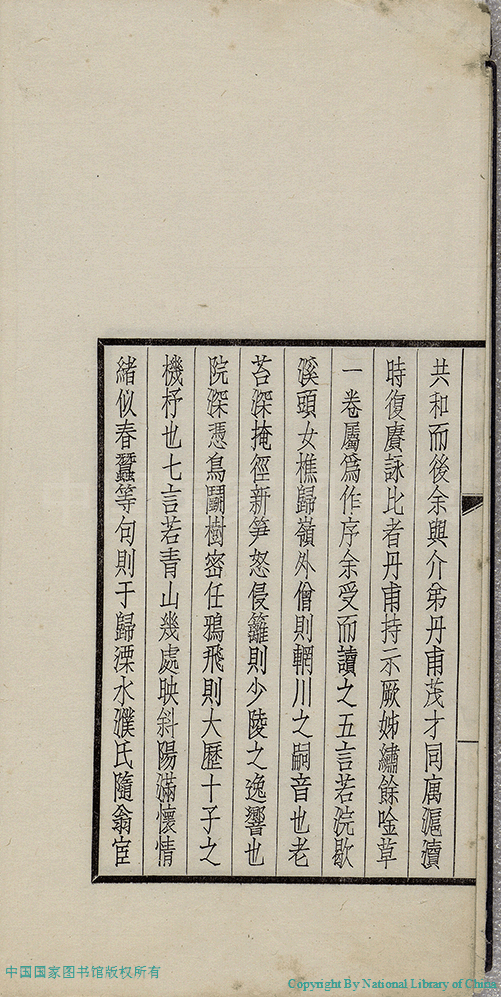 共和而後余與介弟丹甫茂才同寓滬瀆
時復賡詠比者丹甫持示厥姊繡餘唫草
一卷屬爲作序余受而讀之五言若浣歇
溪頭女樵歸嶺外僧則輞川之嗣音也老
苔深掩徑新笋怒侵籬則少陵之逸響也
院深憑鳥鬬樹密任鴉飛則大歷十子之
機杼也七言若青山幾處映斜陽滿懷情
緒似春蠶等句則于歸溧水濮氏隨翁宦
中国国家图书馆版权所有
Copyright By National Library of China